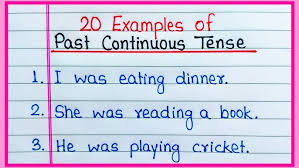 20 Examples of
Past Continuous Tense
1. I was eating dinner.
2. She was reading a book.
3. He was playing cricket.